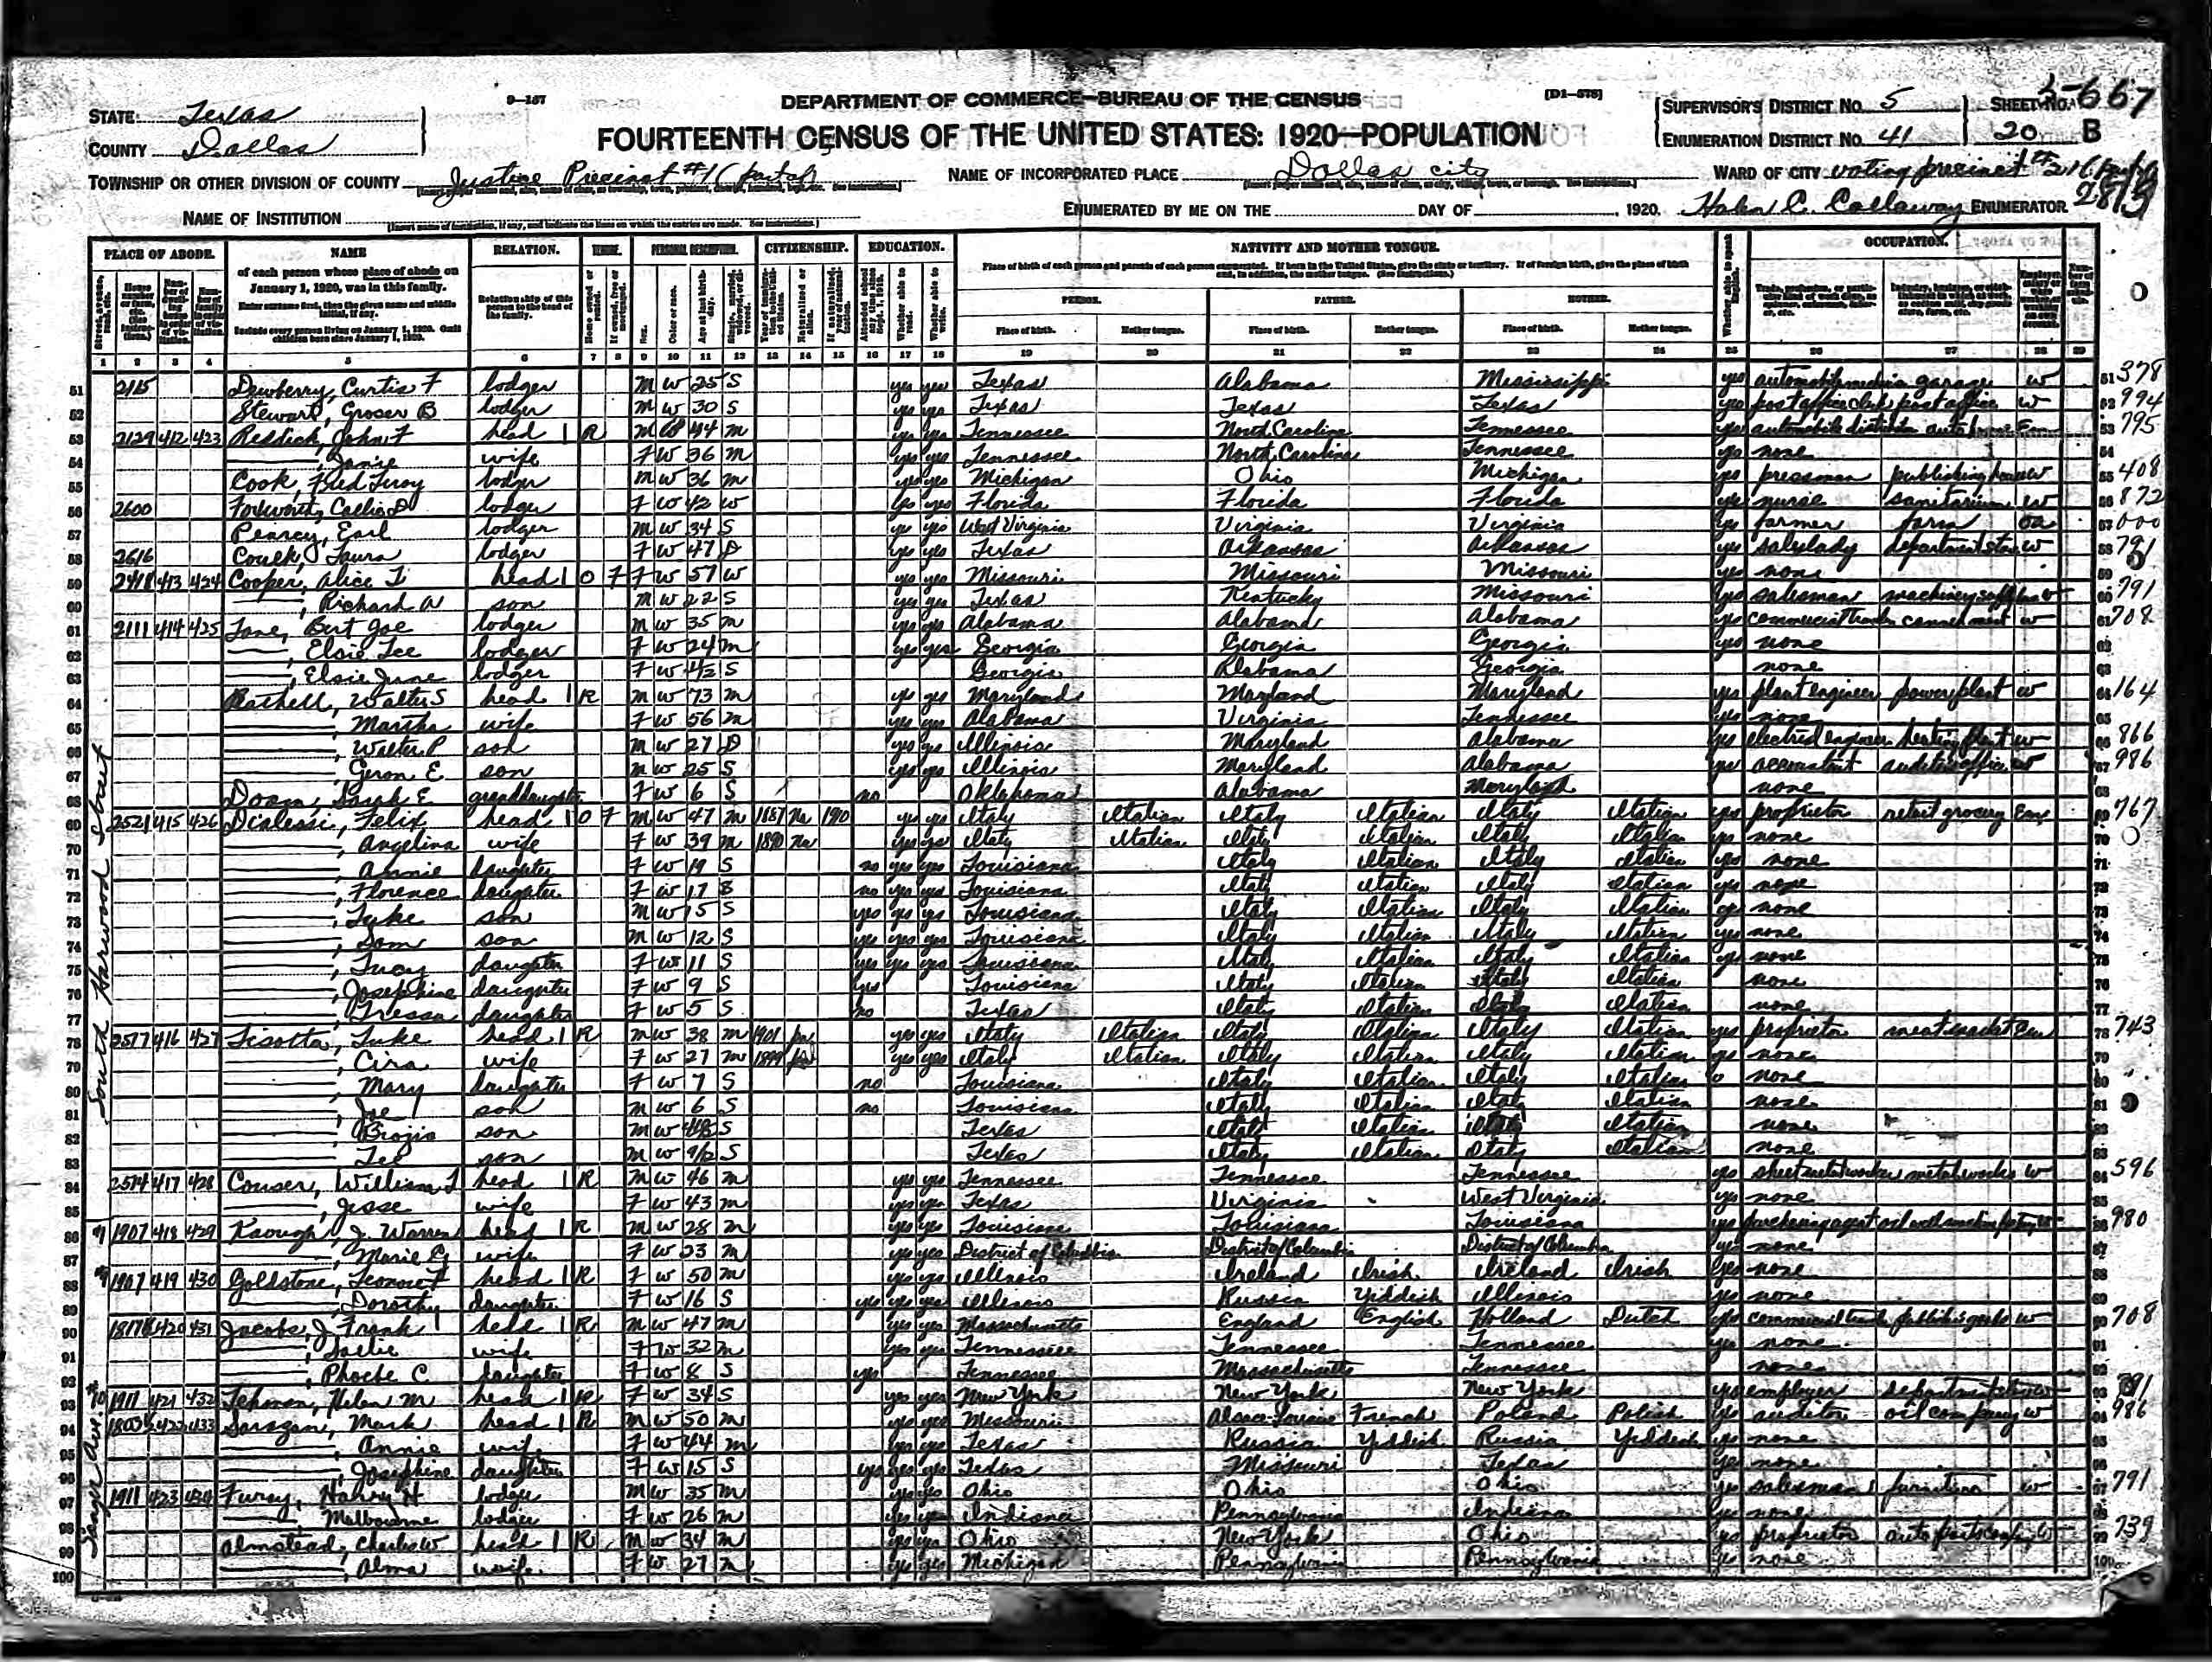 9-157
DEPARTMENT OF COMMERCE—BUREAU OF THE CENSUS
[D1-578]
FOURTEENTH CENSUS OF THE UNITED STATES: 1920—POPULATION
STATE Texas
COUNTY Dallas
SUPERVISOR'S DISTRICT NO. 5
ENUMERATION DISTRICT NO. 41
SHEET NO. 20 B
TOWNSHIP OR OTHER DIVISION OF COUNTY Justice Precinct #1
NAME OF INCORPORATED PLACE Dallas city
WARD OF CITY voting precinct
NAME OF INSTITUTION
ENUMERATED BY ME ON THE DAY OF , 1920. C. Callaway ENUMERATOR
PLACE OF ABODE. NAME RELATION. TENURE. PERSONAL DESCRIPTION. CITIZENSHIP. EDUCATION. NATIVITY AND MOTHER TONGUE. OCCUPATION.
of each person whose place of abode on January 1, 1920, was in this family.
Enter surname first, then the given name and middle initial, if any.
Include every person living on January 1, 1920. Omit children born since January 1, 1920.
Relationship of this person to the head of the family.
Place of birth of each person and parents of each person enumerated. If born in the United States, give the state or territory. If of foreign birth, give the place of birth and, in addition, the mother tongue. (See Instructions.)
PERSON. FATHER. MOTHER.
Place of birth. Mother tongue. Place of birth. Mother tongue. Place of birth. Mother tongue.
1 2 3 4 5 6 7 8 9 10 11 12 13 14 15 16 17 18 19 20 21 22 23 24 25 26 27 28 29
South Harwood Street
51 2115 Dewberry, Curtis F lodger M W 25 S yes yes Texas Alabama Mississippi yes garage w 378
52 Stewart, B lodger M W 30 S yes yes Texas Texas Texas yes post office clerk post office w 994
53 2129 412 423 Reddick, John F head 1 R M W 44 M yes yes Tennessee North Carolina Tennessee yes automobile Em 795
54 , Janie wife F W 36 M yes yes Tennessee North Carolina Tennessee yes none
55 Cook, Fred Leroy lodger M W 36 M yes yes Michigan Ohio Michigan yes pressman publishing house w 408
56 2600 lodger F W 42 W yes yes Florida Florida Florida yes nurse sanitarium w 872
57 Pearcy, Earl lodger M W 34 S yes yes West Virginia Virginia Virginia yes farmer farm oa 000
58 2616 Laura lodger F W 47 D yes yes Texas Arkansas Arkansas yes saleslady department store w 791
59 2418 413 424 Cooper, Alice head 1 O F F W 57 W yes yes Missouri Missouri Missouri yes none
60 , Richard W son M W 22 S yes yes Texas Kentucky Missouri yes salesman w 791
61 2111 414 425 Lane, Bert Joe lodger M W 35 M yes yes Alabama Alabama Alabama yes w 708
62 , Elsie Lee lodger F W 24 M yes yes Georgia Georgia Georgia yes none
63 , Elsie June lodger F W S Georgia Alabama Georgia none
64 Rathell, Walter S head 1 R M W 73 M yes yes Maryland Maryland Maryland yes plant engineer power plant w 164
65 , Martha wife F W 56 M yes yes Alabama Virginia Tennessee yes none
66 , Walter P son M W 27 D yes yes Illinois Maryland Alabama yes heating plant w 866
67 , Geron E son M W 25 S yes yes Illinois Maryland Alabama yes accountant w 986
68 Doan, Sarah E granddaughter F W 6 S no Oklahoma Alabama Maryland none
69 2521 415 426 Dialessi, Felix head 1 O F M W 47 M 1887 Na yes yes Italy Italian Italy Italian Italy Italian yes proprietor retail grocery Em 767
70 , Angelina wife F W 39 M 1890 Na yes yes Italy Italian Italy Italian Italy Italian yes none
71 , Annie daughter F W 19 S no yes yes Louisiana Italy Italian Italy Italian yes none
72 , Florence daughter F W 17 S no yes yes Louisiana Italy Italian Italy Italian yes none
73 , Luke son M W 15 S yes yes yes Louisiana Italy Italian Italy Italian yes none
74 , Sam son M W 12 S yes yes yes Louisiana Italy Italian Italy Italian yes none
75 , Lucy daughter F W 11 S yes yes yes Louisiana Italy Italian Italy Italian yes none
76 , Josephine daughter F W 9 S yes Louisiana Italy Italian Italy Italian none
77 , Tressa daughter F W 5 S no Texas Italy Italian Italy Italian none
78 2517 416 427 Lisotta, Luke head 1 R M W 38 M 1901 yes yes Italy Italian Italy Italian Italy Italian yes proprietor meat market Em 743
79 , Cira wife F W 27 M 1899 yes yes Italy Italian Italy Italian Italy Italian yes none
80 , Mary daughter F W 7 S no Louisiana Italy Italian Italy Italian none
81 , Joe son M W 6 S no Louisiana Italy Italian Italy Italian none
82 , Biagio son M W S Texas Italy Italian Italy Italian none
83 , Lee son M W S Texas Italy Italian Italy Italian none
84 2514 417 428 Couser, William head 1 R M W 46 M yes yes Tennessee Tennessee Tennessee yes sheet metal worker metal works w 596
85 , Jesse wife F W 43 M yes yes Texas Virginia West Virginia yes none
Sanger Ave
86 1907 418 429 Keough, J. Warren head 1 R M W 28 M yes yes Louisiana Louisiana Louisiana yes purchasing agent 980
87 , Marie wife F W 23 M yes yes District of Columbia District of Columbia District of Columbia yes none
88 1907 419 430 Goldstone, head 1 R F W 50 M yes yes Illinois Ireland Irish Ireland Irish yes none
89 , Dorothy daughter F W 16 S yes yes yes Illinois Russia Yiddish Illinois yes none
90 420 431 Jacobs, J. Frank head 1 R M W 47 M yes yes Massachusetts England English Holland Dutch yes w 708
91 , Sallie wife F W 32 M yes yes Tennessee Tennessee Tennessee yes none
92 , Phoebe C. daughter F W 8 S yes Tennessee Massachusetts Tennessee none
93 1911 421 432 Lehman, Helen M head 1 R F W 34 S yes yes New York New York New York yes department store w 791
94 1803½ 422 433 Sarazan, Mark head 1 R M W 50 M yes yes Missouri Alsace-Lorraine French Poland Polish yes auditor oil company w 986
95 , Annie wife F W 44 M yes yes Texas Russia Yiddish Russia Yiddish yes none
96 , Josephine daughter F W 15 S yes yes yes Texas Missouri Texas yes none
97 1911 423 434 Furay, Harry H lodger M W 35 M yes yes Ohio Ohio Ohio yes salesman furniture w 791
98 , Melbourne lodger F W 26 M yes yes Indiana Pennsylvania Indiana yes none
99 Olmstead, Charles W head 1 R M W 34 M yes yes Ohio New York Ohio yes proprietor 739
100 , Alma wife F W 27 M yes yes Michigan Pennsylvania Pennsylvania yes none